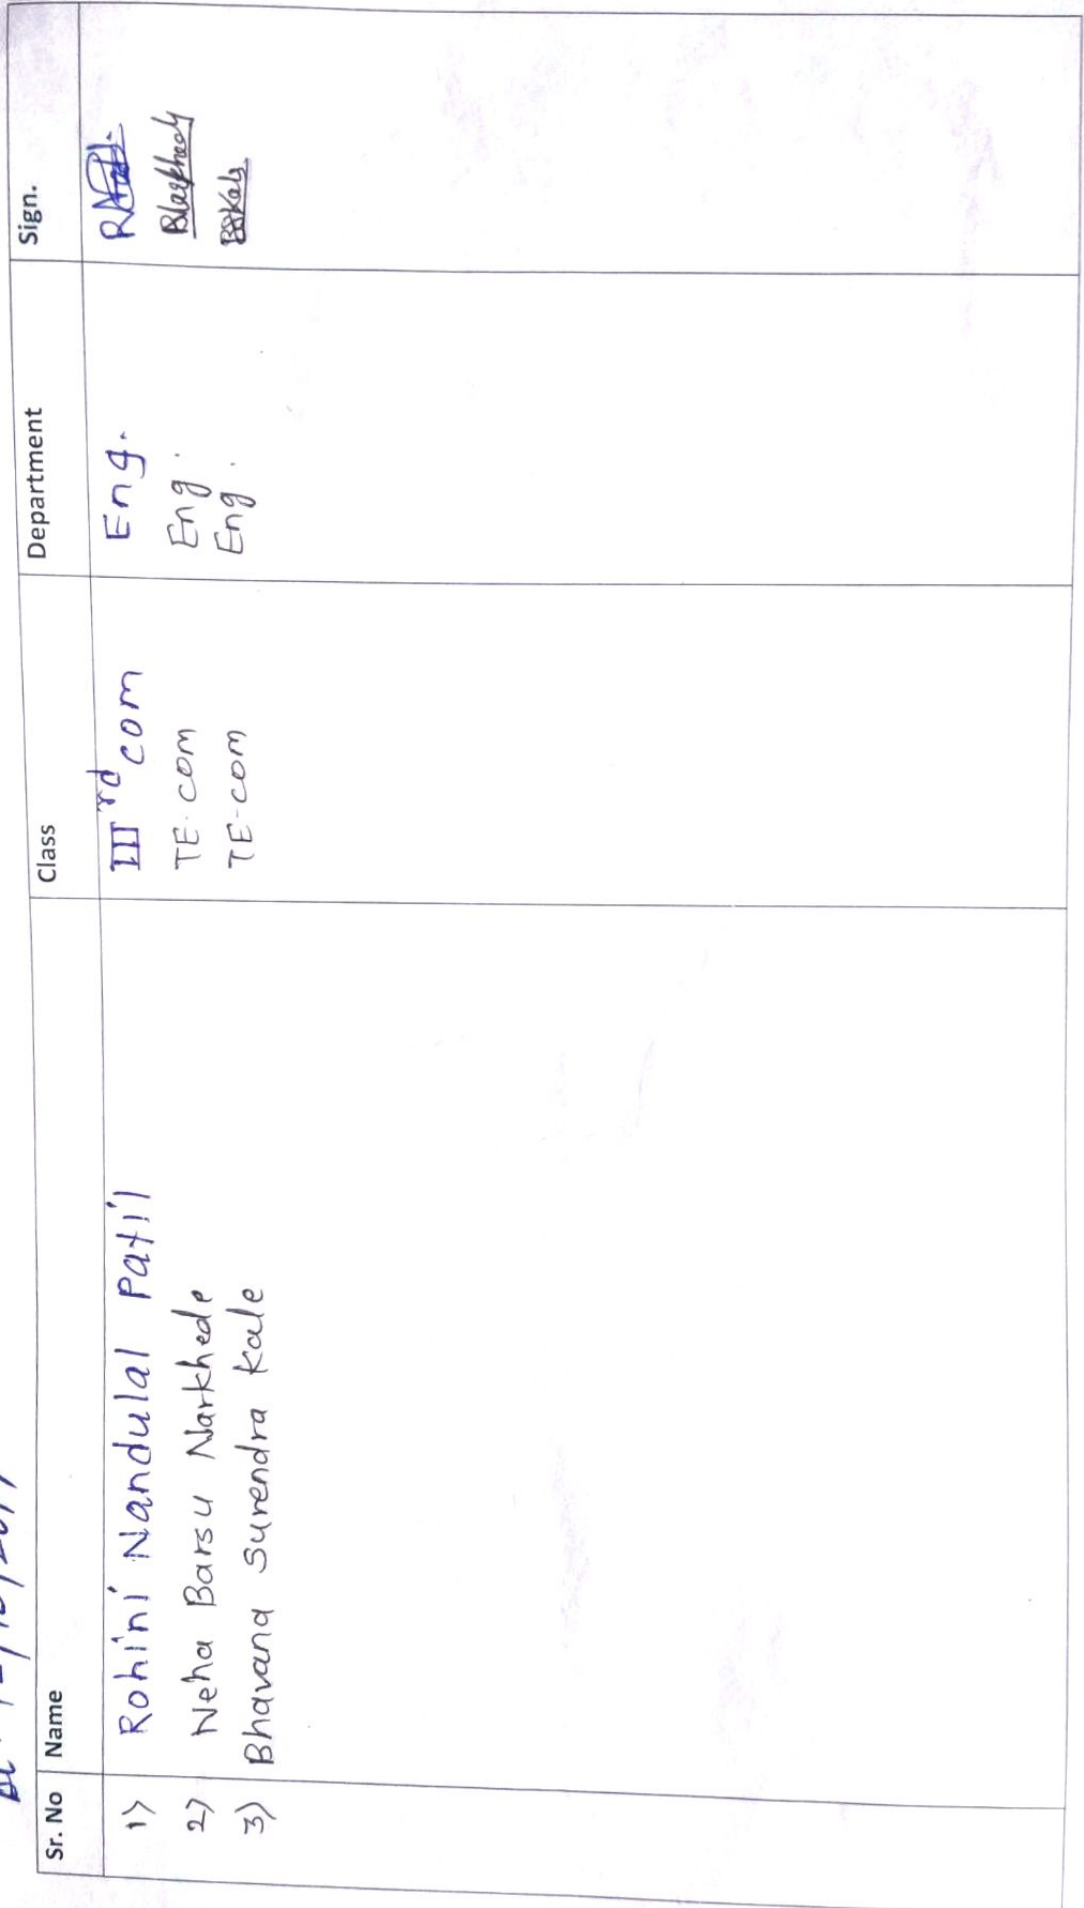 Sr. No Name Class Department Sign.
1) Rohini Nandulal Patil IIIrd com Eng.
2) Neha Barsu Narkhede TE.com Eng.
3) Bhavana Surendra Kale TE-com Eng.